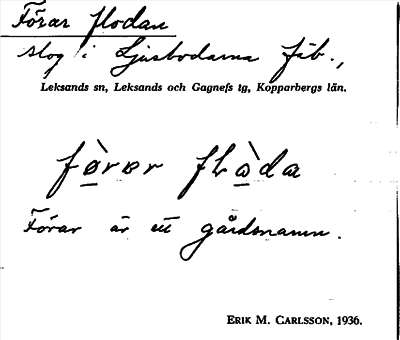 Förar flodan
slog i Ljusbodarna fäb.,
Leksands sn, Leksands och Gagnefs tg, Kopparbergs län.
fø̀rar flὼda
Förar är ett gårdsnamn.
ERIK M. CARLSSON, 1936.